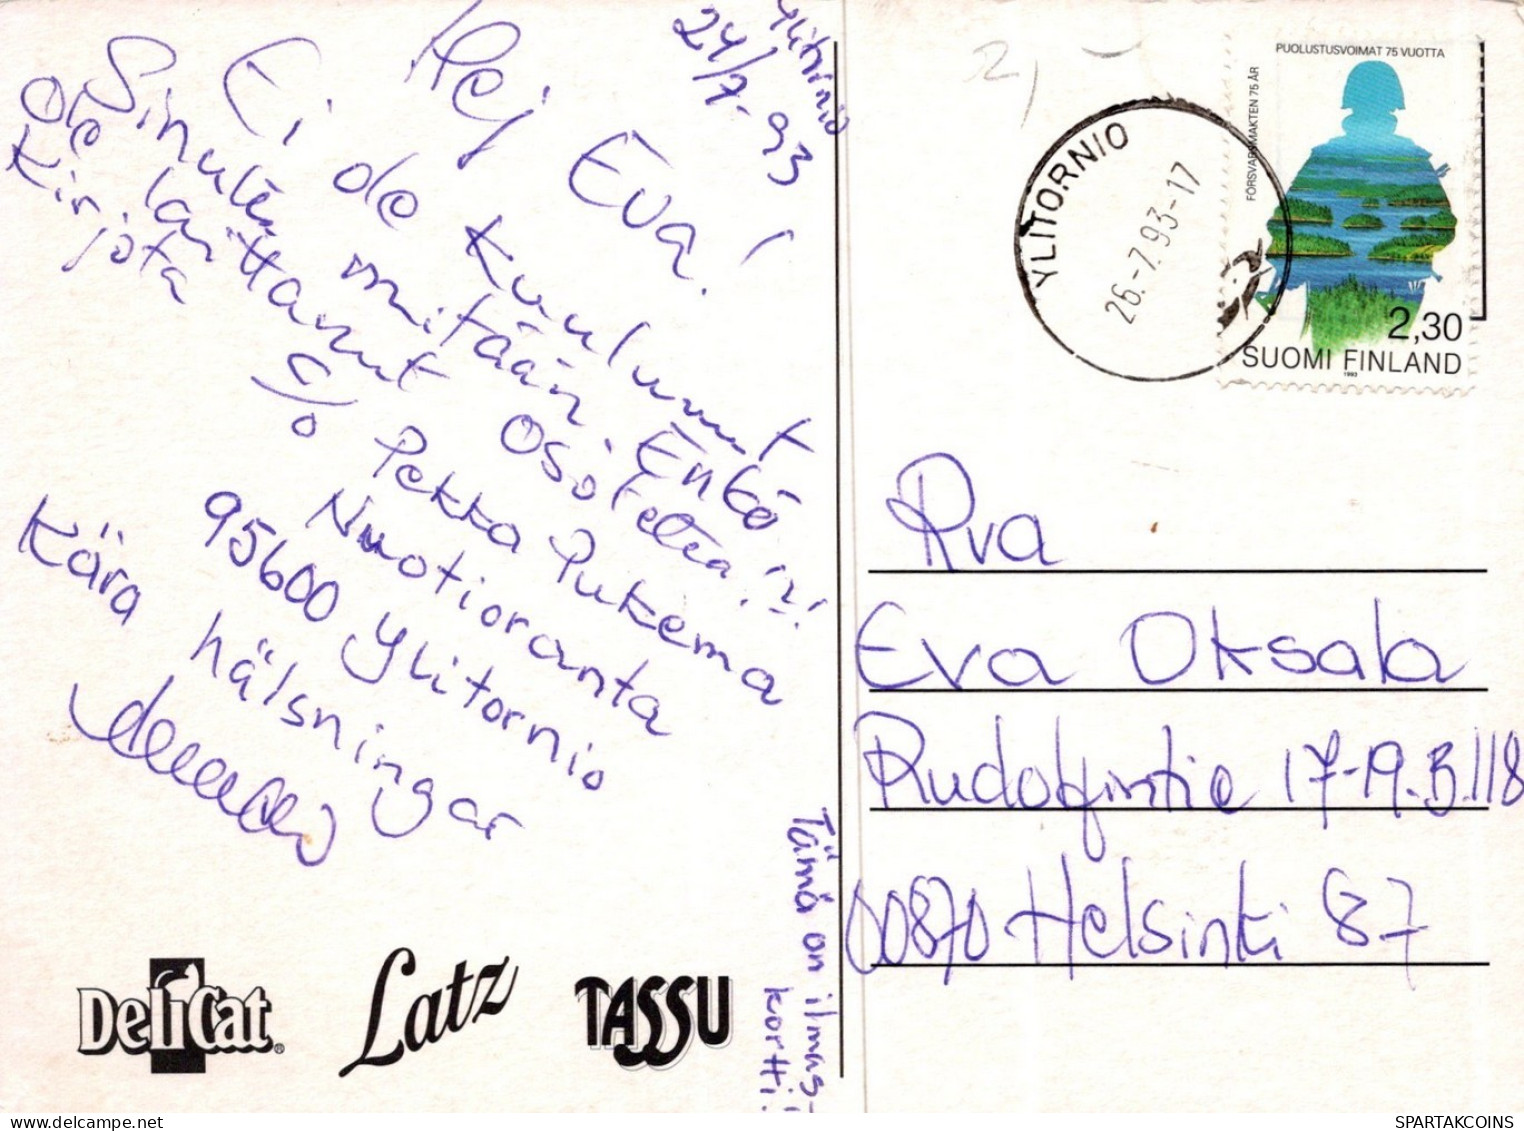 Ylitornio
24/7-93
Hej Eva!
Ei ole kuulunut
Sinulta mitään. Enkö
ole laittanut osoitetta!?!
Kirjota
c/o Pekka Pukema
Nuotioranta
95600 Ylitornio
Kära hälsningar
Tämä on ilmas-
kortti!
DeliCat
Latz
TASSU
2,-
YLITORNIO
26.-7.93-17
PUOLUSTUSVOIMAT 75 VUOTTA
FÖRSVARSMAKTEN 75 ÅR
2,30
SUOMI FINLAND
1993
Rva
Eva Oksala
Rudolfintie 17-19.B.118
00870 Helsinki 87
SPARTAKCOINS